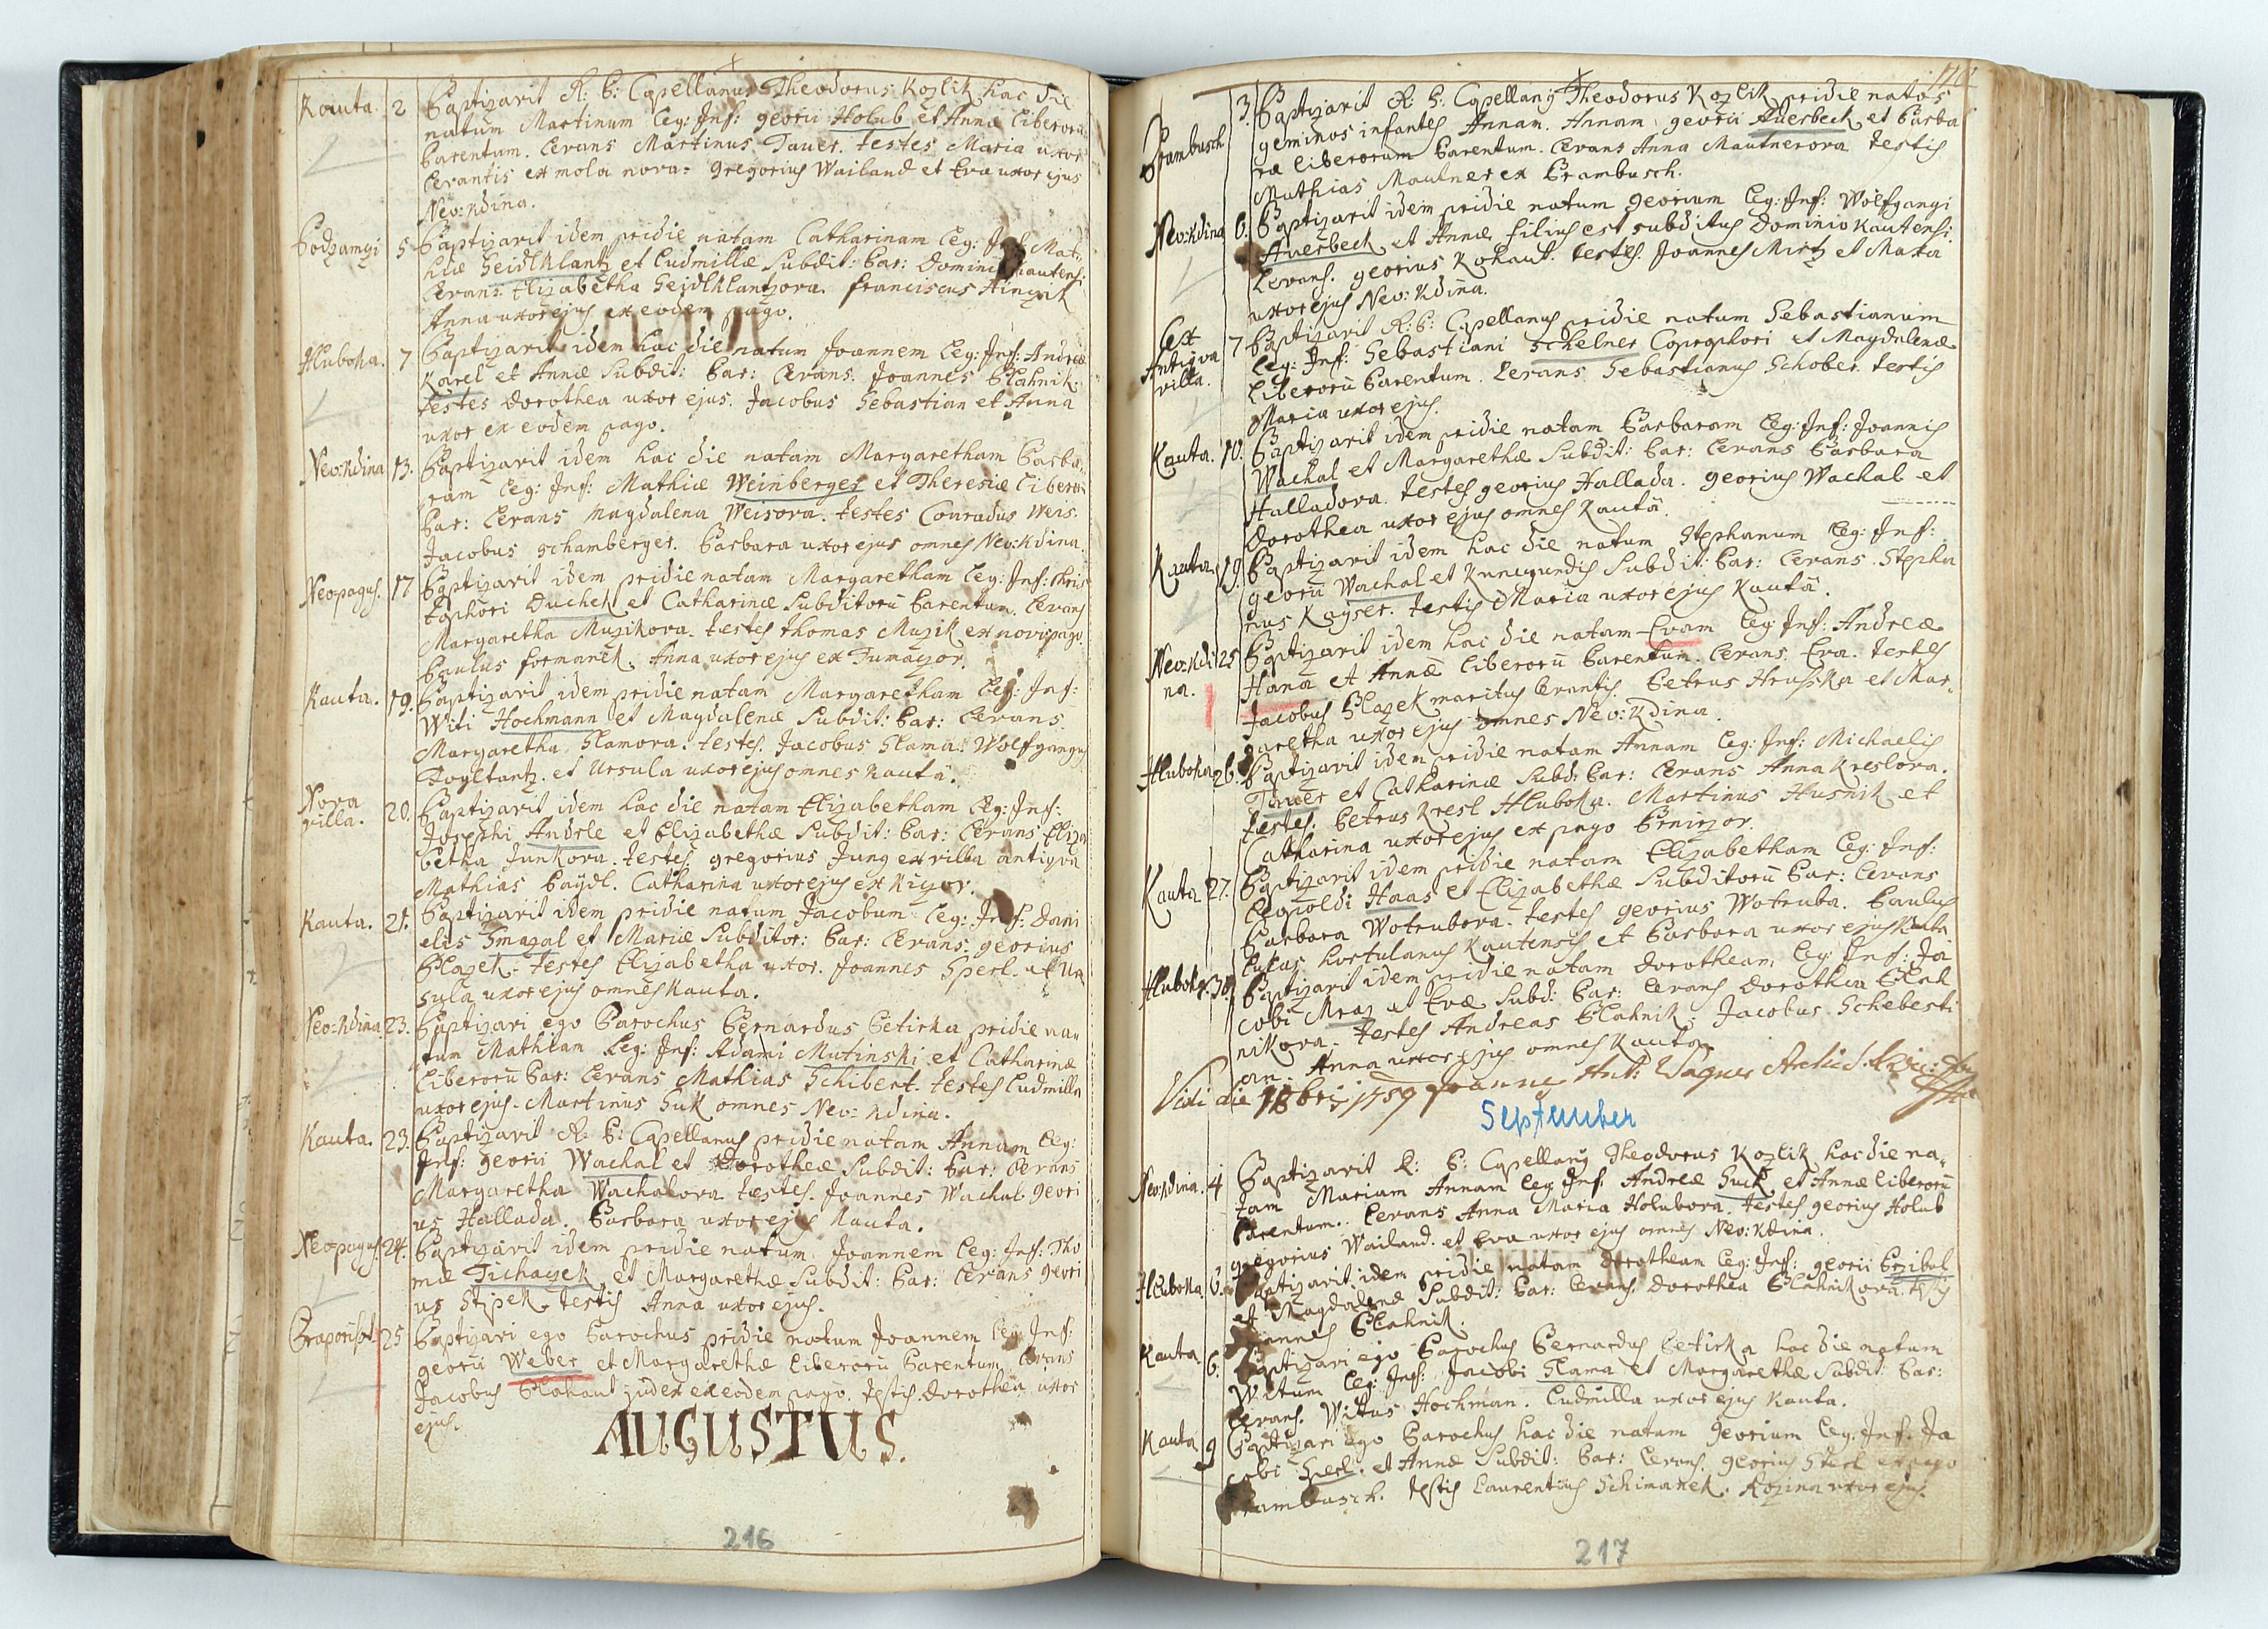 Kauta. 2 Baptizavit R: P: Capellanus Theodorus Kozlik hac die
natum Martinum leg: Inf: georii Holub et Annæ liberorū
Parentum. Levans Martinus Tauer. testes Maria uxor
Levantis ex mola nova. gregorius Wailand et Eva uxor ejus
Neo: Kdina.
Podzamzi 5 Baptizavit idem pridie natam Catharinam leg: Inf: Mat
hiæ Seidlklantz et Ludmillæ Subdit: Par: Dominii Kautens:
Levans Elizabetha Seidlklantzora. franciscus
Anna uxor ejus ex eodem pago.
Hluboka. 7 Baptizavit idem hac die natum Joannem leg: Inf: Andreæ
Karel et Annæ Subdit: Par: Levans. Joannes Blahnik.
testes Dorothea uxor ejus. Jacobus Sebastian et Anna
uxor ex eodem pago.
Neo: Kdina 13. Baptizavit idem hac die natam Margaretham Barba
ram leg: Inf: Mathiæ Weinberger et Theresiæ liberorū
Par: Levans Magdalena Weisova. testes Conradus Weis.
Jacobus Schamberger. Barbara uxor ejus omnes Neo: Kdina.
Neopagus. 17 Baptizavit idem pridie natam Margaretham leg: Inf: Chris
tophori Duchek et Catharinæ Subditorū Parentum. Levans
Margaretha Muzikova. testes thomas Muzik ex novo pago.
Paulus formanek. Anna uxor ejus ex Tumaczor.
Kauta. 19. Baptizavit idem pridie natam Margaretham leg: Inf:
Witi Hochmann et Magdalenæ Subdit: Par: Levans
Margaretha Slamova. testes. Jacobus Slama. Wolfgangus
Vogltantz. et Ursula uxor ejus omnes Kauta.
Nova villa. 20. Baptizavit idem hac die natam Elizabetham leg: Inf:
Josephi Andrle et Elizabethæ Subdit: Par: Levans Eliza
betha Junkova. testes gregorius Jung ex villa antiqva
Mathias Baÿdl. Catharina uxor ejus ex
Kauta. 21. Baptizavit idem pridie natum Jacobum leg: Inf: Dani
elis Smazal et Mariæ Subditor: Par: Levans. georius
Blazek. testes Elizabetha uxor. Joannes Sperl. et Ur
sula uxor ejus omnes Kauta.
Neo: Kdina 23. Baptizavi ego Parochus Bernardus Petirka pridie na
tum Mathiam leg: Inf: Adami Mutinski et Catharinæ
liberorū Par: Levans Mathias Schibert. testes Ludmilla
uxor ejus. Martinus Suk omnes Neo: Kdina.
Kauta. 23. Baptizavit R: P: Capellanus pridie natam Annam leg:
Inf: georii Wachal et Dorotheæ Subdit: Par: Levans
Margaretha Wachalova testes. Joannes Wachal. geori
us Hallada. Barbara uxor ejus Kauta.
Neopagus. 24. Baptizavit idem pridie natum Joannem leg: Inf: Tho
mæ Tichaczek et Margarethæ Subdit: Par: Levans geori
us Stipek. testis Anna uxor ejus.
25 Baptizavi ego Parochus pridie natum Joannem leg: Inf:
georii Weber et Margarethæ liberorū Parentum. Levans
Jacobus judex ex eodem pago. testis Dorothea uxor
ejus.
AUGUSTUS.
216
3. Baptizavit R: P: Capellanus Theodorus Kozlik pridie natos
Prambusch geminos infantes Annam. Annam georii Auerbeck et Barba
ræ liberorum Parentum. Levans Anna Mautnerova testis
Mathias Mautner ex Prambusch.
Neo: Kdina 6. Baptizavit idem pridie natum georium leg: Inf: Wolfgangi
Auerbeck et Annæ filius est subditus Dominio Kautensi.
Levans. georius Kohaut. testes. Joannes Mirtz et Marta
uxor ejus Neo: Kdina.
Ex Antiqva villa. 7 Baptizavit R: P: Capellanus pridie natum Sebastianum
leg: Inf: Sebastiani Schelner Coprophori et Magdalenæ
liberorū Parentum. Levans Sebastianus Schober. testis
Maria uxor ejus.
Kauta. 10. Baptizavit idem pridie natam Barbaram leg: Inf: Joannis
Wachal et Margarethæ Subdit: Par: Levans Barbara
Halladova. testes georius Hallada. georius Wachal et
Dorothea uxor ejus omnes Kautā.
Kauta 19. Baptizavit idem hac die natum Stephanum leg: Inf:
georii Wachal et Kunegundis Subdit: Par: Levans Stepha
nus Kaÿser. testis Maria uxor ejus Kautā.
Neo: Kdi na. 25 Baptizavit idem hac die natam Evam leg: Inf: Andreæ
Hana et Annæ liberorū Parentum. Levans. Eva. testes
Jacobus Blazek maritus Levantis. Petrus Hruska et Mar
garetha uxor ejus omnes Neo: Kdina.
Hluboka 26. Baptizavit idem pridie natam Annam leg: Inf: Michaelis
Tauer et Catharinæ Subd: Par: Levans Anna Kreslova.
testes. Petrus Kresl Hluboka. Martinus Husnik et
Catharina uxor ejus ex pago
Kauta 27. Baptizavit idem pridie natam Elizabetham leg: Inf:
Leopoldi Haas et Elizabethæ Subditorū Par: Levans
Barbara Wotrubova. testes georius Wotruba. Paulus
Lukas hortulanus Kautensis et Barbara uxor ejus Kauta
Hluboka. 30. Baptizavit idem pridie natam Dorotheam leg: Inf: Ja
cobi Mraz et Evæ Subd: Par: Levans Dorothea Blah
nikova. testes Andreas Blahnik. Jacobus Schebesti
an. Anna uxor ejus omnes Kauta.
Vidi die 1759 Joannes Ant: Wagner
September
Neo: Kdina. 4 Baptizavit R: P: Capellanus Theodorus Kozlik hac die na
tam Mariam Annam leg: Inf: Andreæ Suck et Annæ liberorū
Parentum. Levans Anna Maria Holubova. testes georius Holub
gregorius Wailand. et Eva uxor ejus omnes Neo: Kdina.
Hluboka. 6. Baptizavit idem pridie natam Dorotheam leg: Inf: georii Przibal
et Magdalenæ Subdit: Par: Levans. Dorothea Blahnikova. testis
Joannes Blahnik.
Kauta 6. Baptizavi ego Parochus Bernardus Petirka hac die natum
Witum leg: Inf: Jacobi Slama et Margarethæ Subdit: Par:
Levans. Witus Hochman. Ludmilla uxor ejus Kauta.
Kauta 9 Baptizavi ego Parochus hac die natum georium leg: Inf: Ja
cobi Sperl. et Annæ Subdit: Par: Levans. georius Sterl ex pago
Prambusch. testis Laurentius Schimanek. Rozina uxor ejus.
217